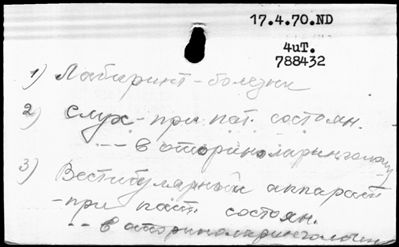 17.4.70.ND
4uT.
788432
1) Лабиринт-болезни
2) слух-при пат. состоян.
--- в оториноларинголог
3) Вестибулярный аппарат
-при пат. состоян.
-- в оториноларинголог